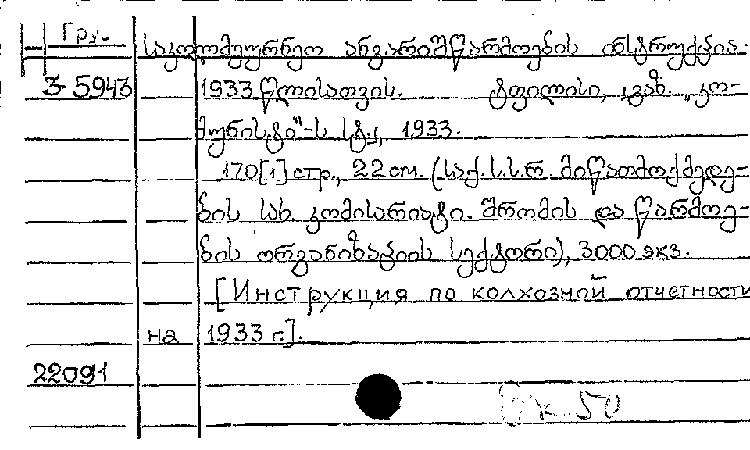 Гру.
საკოლმეურნეო ანგარიშწარმოების ინსტრუქცია
З 5943 1933 წლისათვის. ტფილისი, გაზ. „კო-
მუნისტი"-ს სტ., 1933.
170[1] стр., 22 см. (საქ.ს.ს.რ. მიწათმოქმედე-
ბის სახ. კომისარიატი. შრომის და წარმოე-
ბის ორგანიზაციის სექტორი), 3000 экз.
[Инструкция по колхозной отчетности
на 1933 г.].
22091
ж. 50